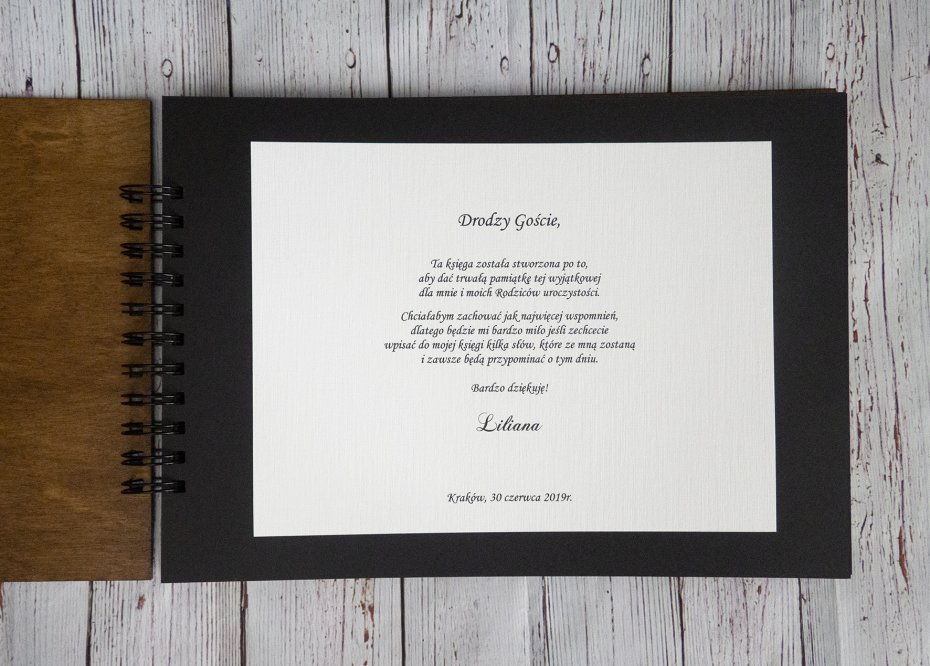 Drodzy Goście,
Ta księga została stworzona po to,
aby dać trwałą pamiątkę tej wyjątkowej
dla mnie i moich Rodziców uroczystości.
Chciałabym zachować jak najwięcej wspomnień,
dlatego będzie mi bardzo miło jeśli zechcecie
wpisać do mojej księgi kilka słów, które ze mną zostaną
i zawsze będą przypominać o tym dniu.
Bardzo dziękuję!
Liliana
Kraków, 30 czerwca 2019r.